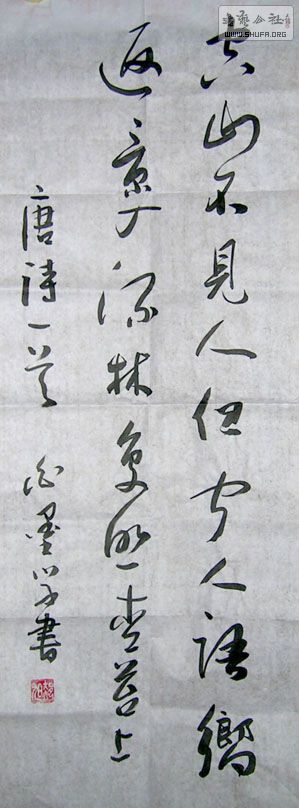 书艺公社
WWW.SHUFA.ORG
空山不見人但聞人語響
返景入深林復照青苔上
唐詩一首 墨學書